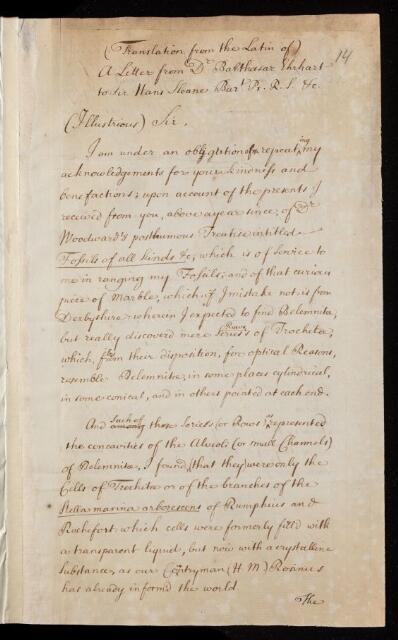 14
(Translation from the Latin of)
A Letter from Dr Balthasar Ehrhart
to Sir Hans Sloane Bart Pr. R. S. &c.
(Illustrious) Sir.
I am under an obligation of repeating my
acknowledgements for your kindness and
benefactions; upon account of the presents I
received from you, above a year since, of Dr
Woodward's posthumous Treatise intitled
Fossils of all kinds &c, which is of service to
me in ranging my Fossils; and of that curious
piece of Marble, which, if I mistake not, is from
Derbyshire: wherein I expected to find Belemnitæ,
but really discoverd mere Series's Rows of Trochitæ;
which, from their disposition, for optical Reasons,
resemble Belemnitæ, in some places cylindrical,
in some conical, and in others pointed at each end.
And such of those Series's (or Rows) as represented
the concavities of the Alveoli (or small Channels)
of Belemnitæ, I found, (that they) were only the
Cells of Trochitæ or of the branches of the
Stella marina arborescens of Rumphius and
Rochefort which cells were formerly fill'd with
a transparent liquid, but now with a crystalline
substance, as our Contryman (H M) Rosinus
has already inform'd the world
The